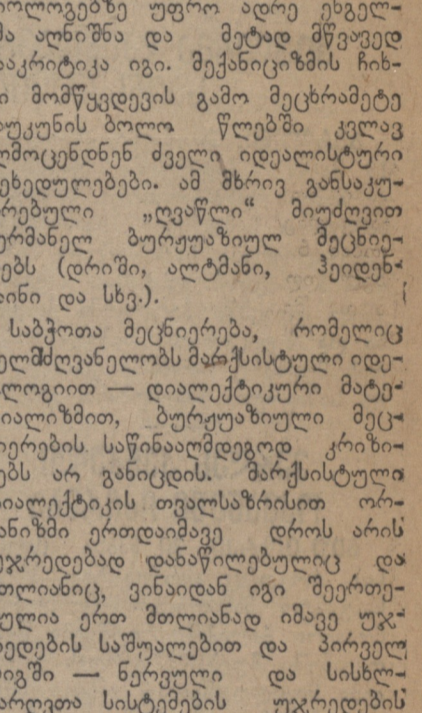 ოლოგებზე უფრო ადრე ენგელ-
მა აღნიშნა და მეტად მწვავედ
ააკრიტიკა იგი. მექანიციზმის ჩიხ-
ი მომწყვდევის გამო მეცხრამეტე
აუკუნის ბოლო წლებში კვლავ
ღმოცენდნენ ძველი იდეალისტური
ეხედულებები. ამ მხრივ განსაკუ-
რებული „ღვაწლი“ მიუძღვით
ერმანელ ბურჟუაზიულ მეცნიე-
ებს (დრიში, ალტმანი, ჰეიდენ-
აინი და სხვ.).
საბჭოთა მეცნიერება, რომელიც
ელმძღვანელობს მარქსისტული იდე-
ლოგიით — დიალექტიკური მატე-
იალიზმით, ბურჟუაზიული მეც-
იერების საწინააღმდეგოდ კრიზი-
ებს არ განიცდის. მარქსისტული
იალექტიკის თვალსაზრისით ორ-
ანიზმი ერთდაიმავე დროს არის
უჯრედებად დანაწილებულიც და
თლიანიც, ვინაიდან იგი შეერთე-
ულია ერთ მთლიანად იმავე უჯ-
ედების საშუალებით და პირველ
იგში — ნერვული და სისხლ-
არღვთა სისტემების უჯრედების